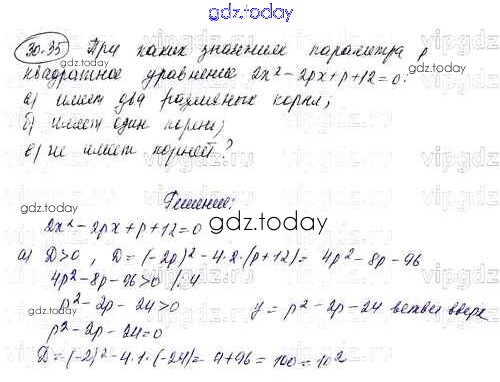 gdz.today
30.35 При каких значениях параметра p
квадратное уравнение 2x²-2px+p+12=0:
gdz.today
а) имеет два различных корня;
б) имеет один корень;
в) не имеет корней?
Решение:
gdz.today
2x²-2px+p+12=0
а) D>0, D=(-2p)²-4·2·(p+12)= 4p²-8p-96
4p²-8p-96>0 /:4
p²-2p-24>0 y=p²-2p-24 ветви вверх
p²-2p-24=0
D=(-2)²-4·1·(-24)=4+96=100=10²
gdz.today